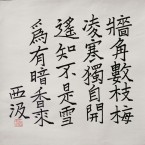 牆角數枝梅
凌寒獨自開
遙知不是雪
為有暗香來
西汲